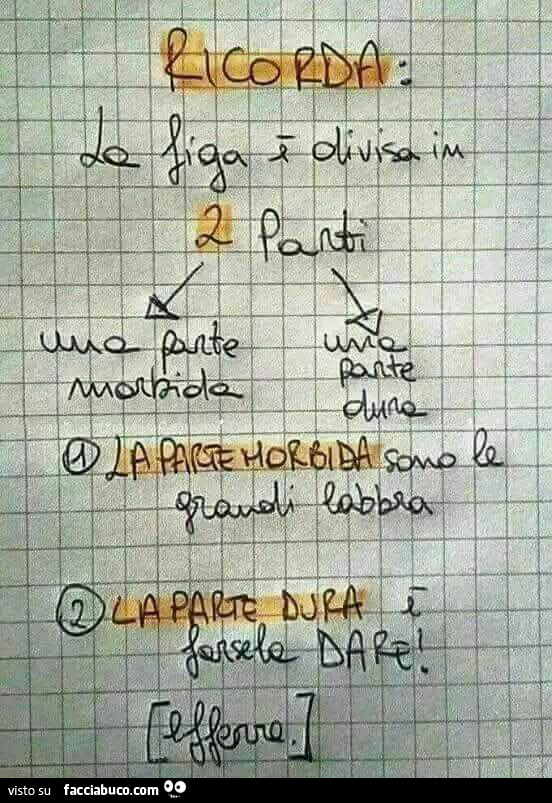 RICORDA:
La figa è divisa in
2 Parti
una parte morbida
una parte dura
① LA PARTE MORBIDA sono le
grandi labbra
② LA PARTE DURA è
farsela DARE!
[efferre.]
visto su facciabuco.com